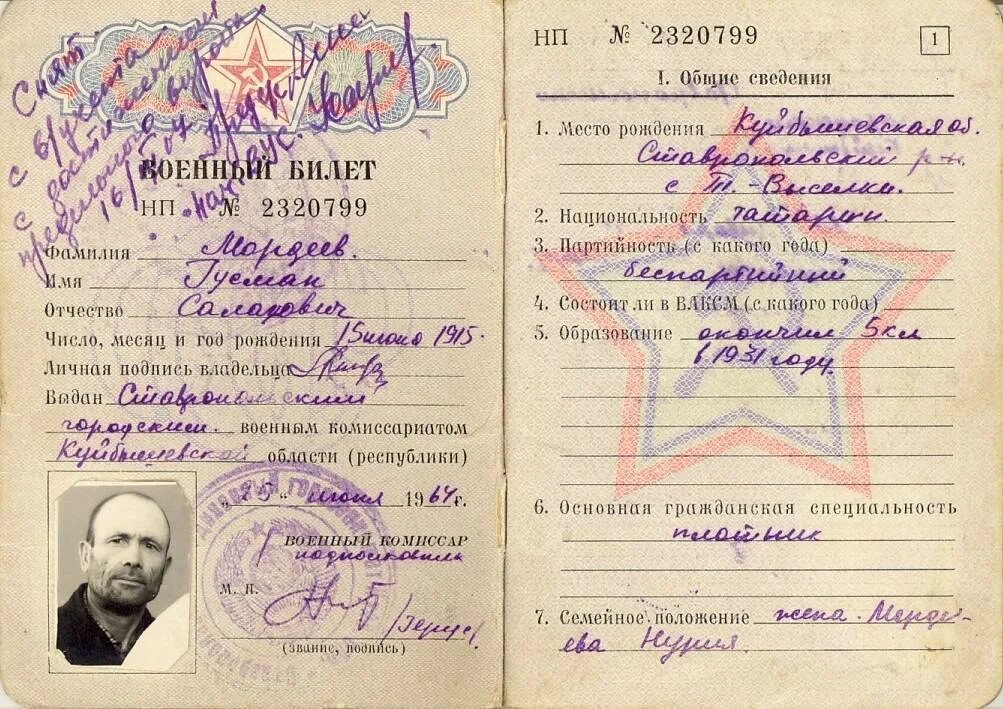 Снят
с в/учета
с достижением
предельного возраста
16/
ВОЕННЫЙ БИЛЕТ
НП № 2320799
Фамилия Мордеев.
Имя Гусман
Отчество Салахович
Число, месяц и год рождения 15 июно 1915.
Личная подпись владельца
Выдан Ставропольским
городским. военным комиссариатом
Куйбышевской области (республики)
„25“ июня 1964г.
ВОЕННЫЙ КОМИССАР
подполковник
М. П.
(звание, подпись)
НП № 2320799
1
I. Общие сведения
1. Место рождения Куйбышевская об.
Ставропольский р-н.
с Т.-Выселки.
2. Национальность татарин.
3. Партийность (с какого года)
беспартийный
4. Состоит ли в ВЛКСМ (с какого года)
5. Образование окончил 5кл
в 1931 году.
6. Основная гражданская специальность
плотник
7. Семейное положение жена. Морде-
ева Нурия.